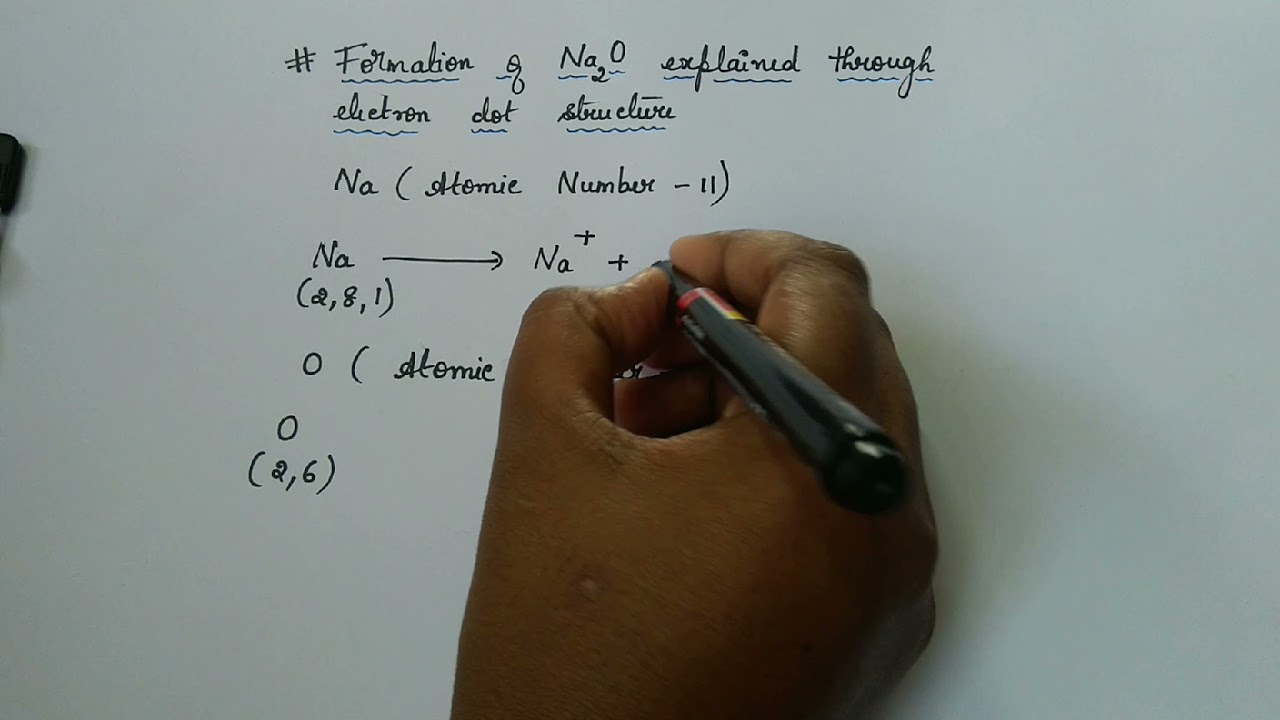 # Formation of Na₂O explained through
electron dot structure
Na ( Atomic Number - 11)
Na ⟶ Na⁺ +
(2,8,1)
O ( Atomic
O
(2,6)